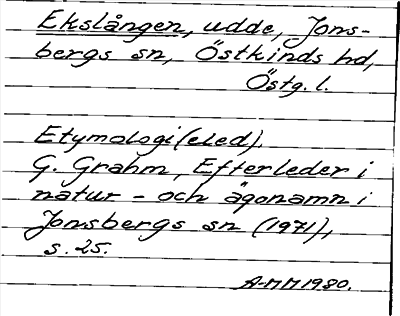 Ekslången, udde, Jons-
bergs sn, Östkinds hd,
Östg. l.
Etymologi (eled).
G. Grahm, Efterleder i
natur- och ägonamn i
Jonsbergs sn (1971),
s. 25.
A-MM 1980.